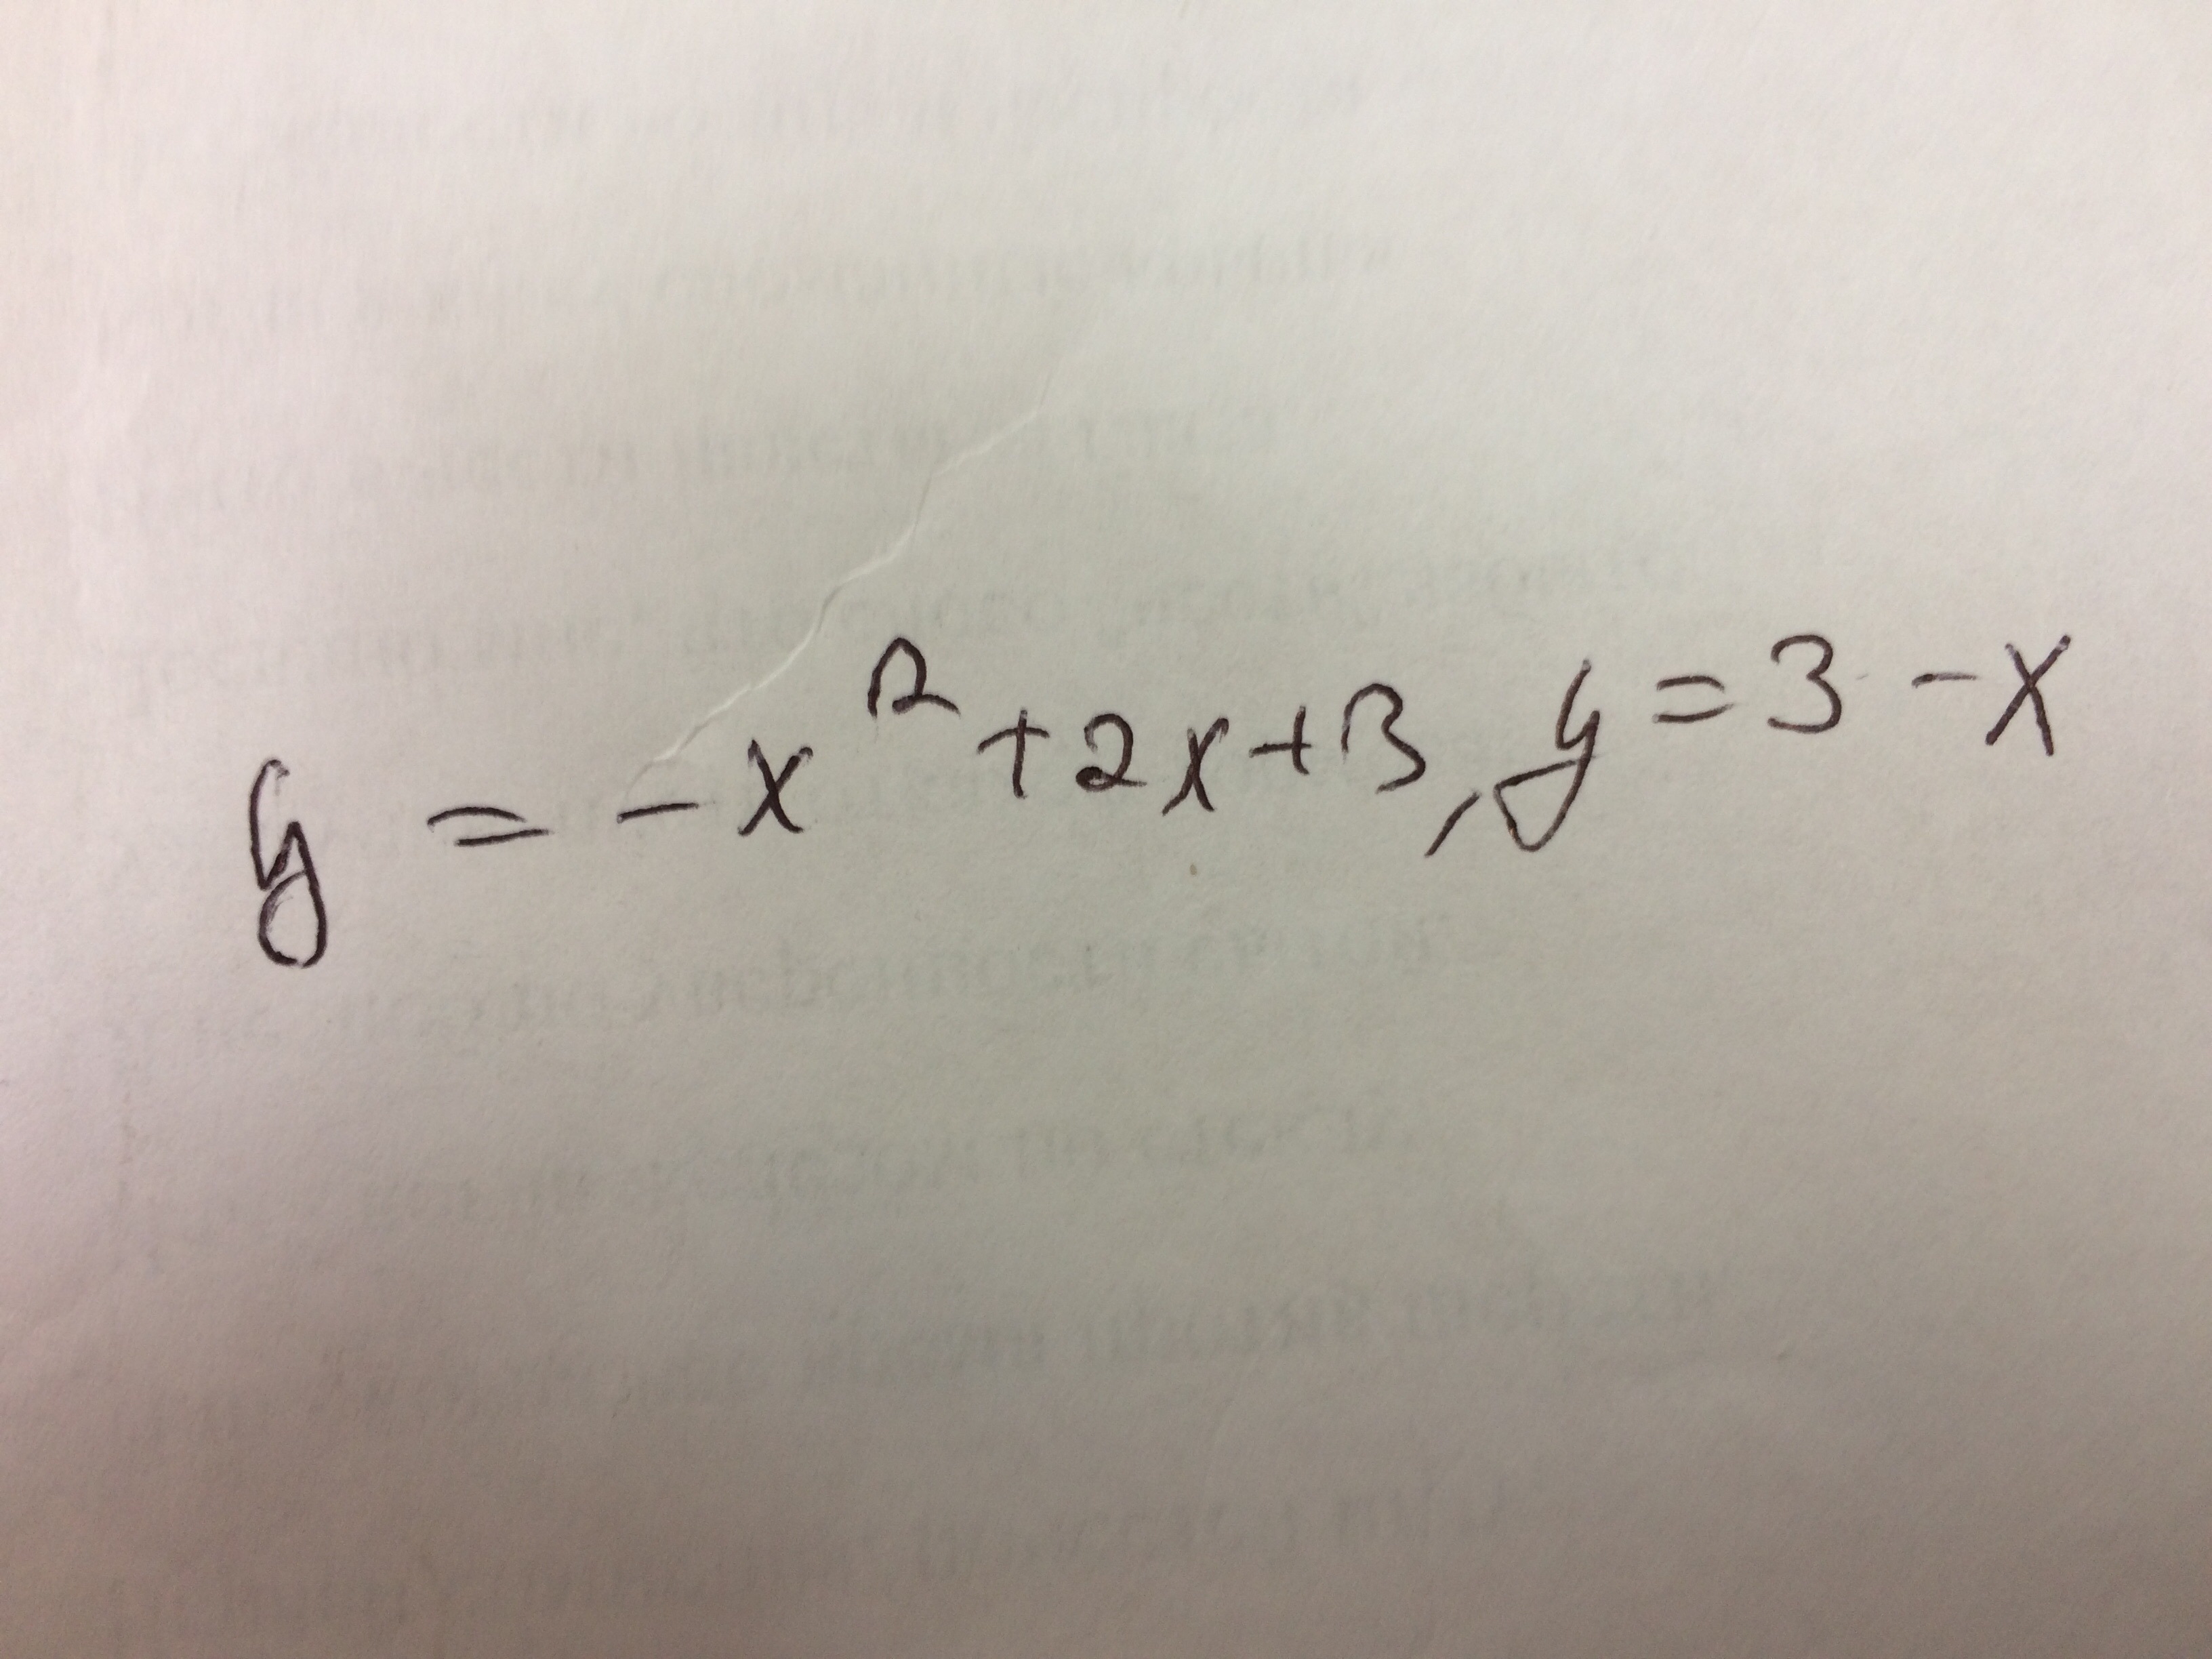 y = -x² + 2x + 3, y = 3 - x